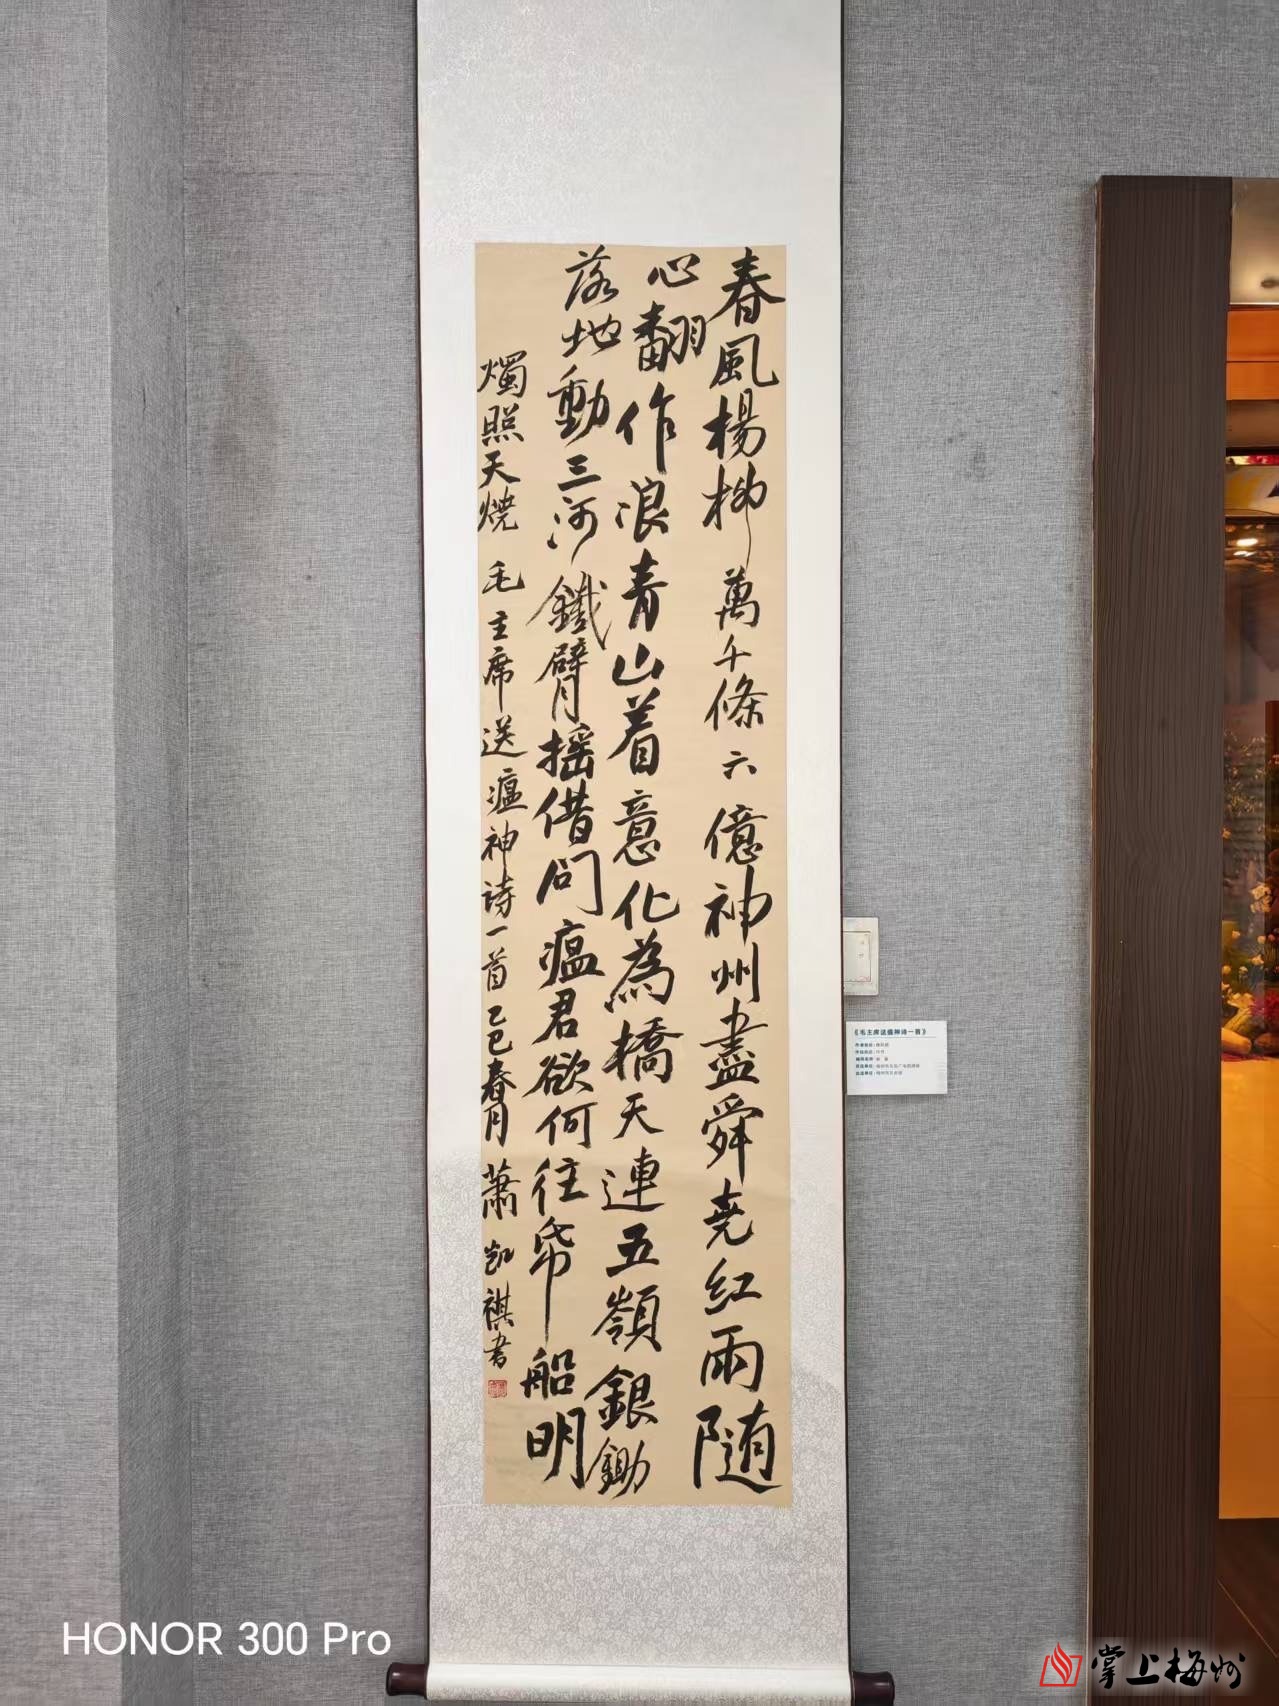 春風楊柳萬千條六億神州盡舜堯紅雨隨
心翻作浪青山着意化為橋天連五嶺銀鋤
落地動三河鐵臂搖借問瘟君欲何往帋船明
燭照天燒 毛主席送瘟神诗一首 乙巳春月 蕭凱祺書
《毛主席送瘟神诗一首》
HONOR 300 Pro
掌上梅州